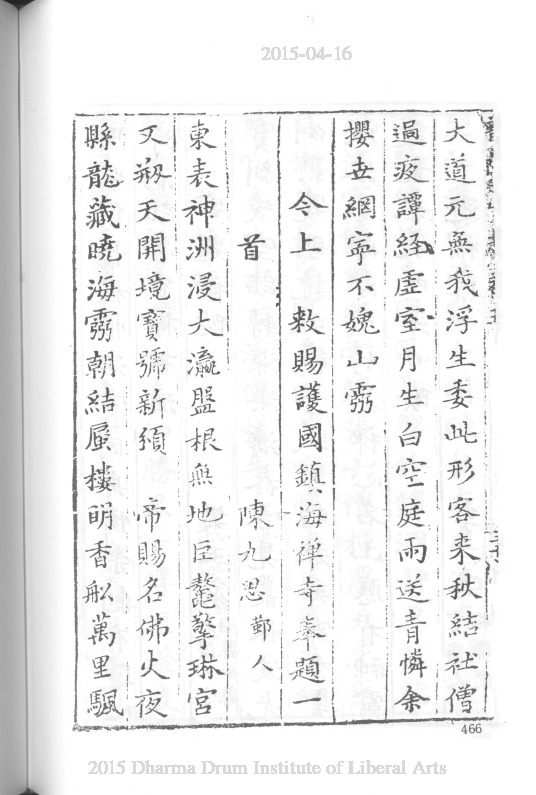 2015-04-16
大道元無我浮生委此形客来秋結社僧
過夜譚經虛室月生白空庭雨送青憐余
攖世網寧不媿山霛
今上　敕賜護國鎮海禅寺奉題一
首　陳九思 鄞人
東表神洲浸大瀛盤根與地巨鼇擎琳宮
又刱天開境寶號新頒　帝賜名佛火夜
縣龍藏曉海霛朝結蜃樓明香舩萬里颿
466
2015 Dharma Drum Institute of Liberal Arts